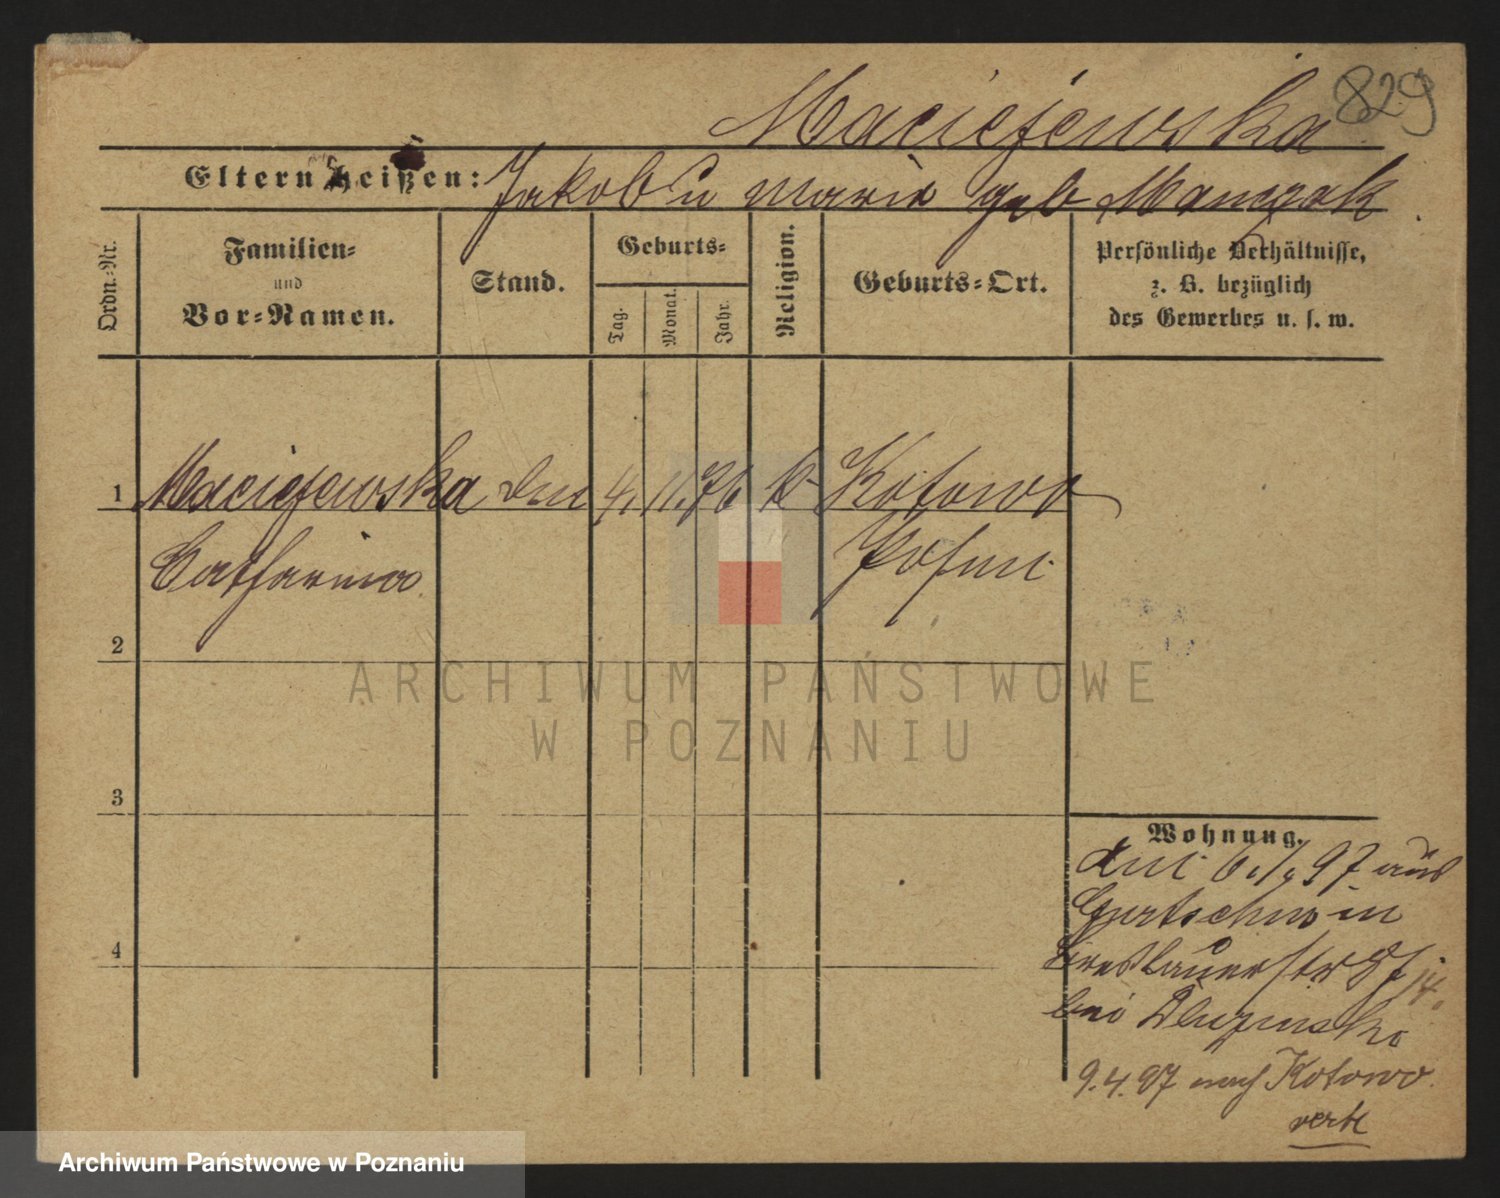 829
Maciejewska
Eltern heißen: Jakob u Marie geb Manczak
Ordn.-Nr.
Familien-
und
Vor-Namen.
Stand.
Geburts-
Tag.
Monat.
Jahr.
Religion.
Geburts-Ort.
Persönliche Verhältnisse,
z. B. bezüglich
des Gewerbes u. s. w.
1 Maciejewska 4. 11. 76 k Kotowo
Catharina Posen
2
ARCHIWUM PAŃSTWOWE
W POZNANIU
3
Wohnung.
97 aus
Gurtschin in
Breslauerstr
bei
4
9.4.97 nach Kotowo.
Archiwum Państwowe w Poznaniu